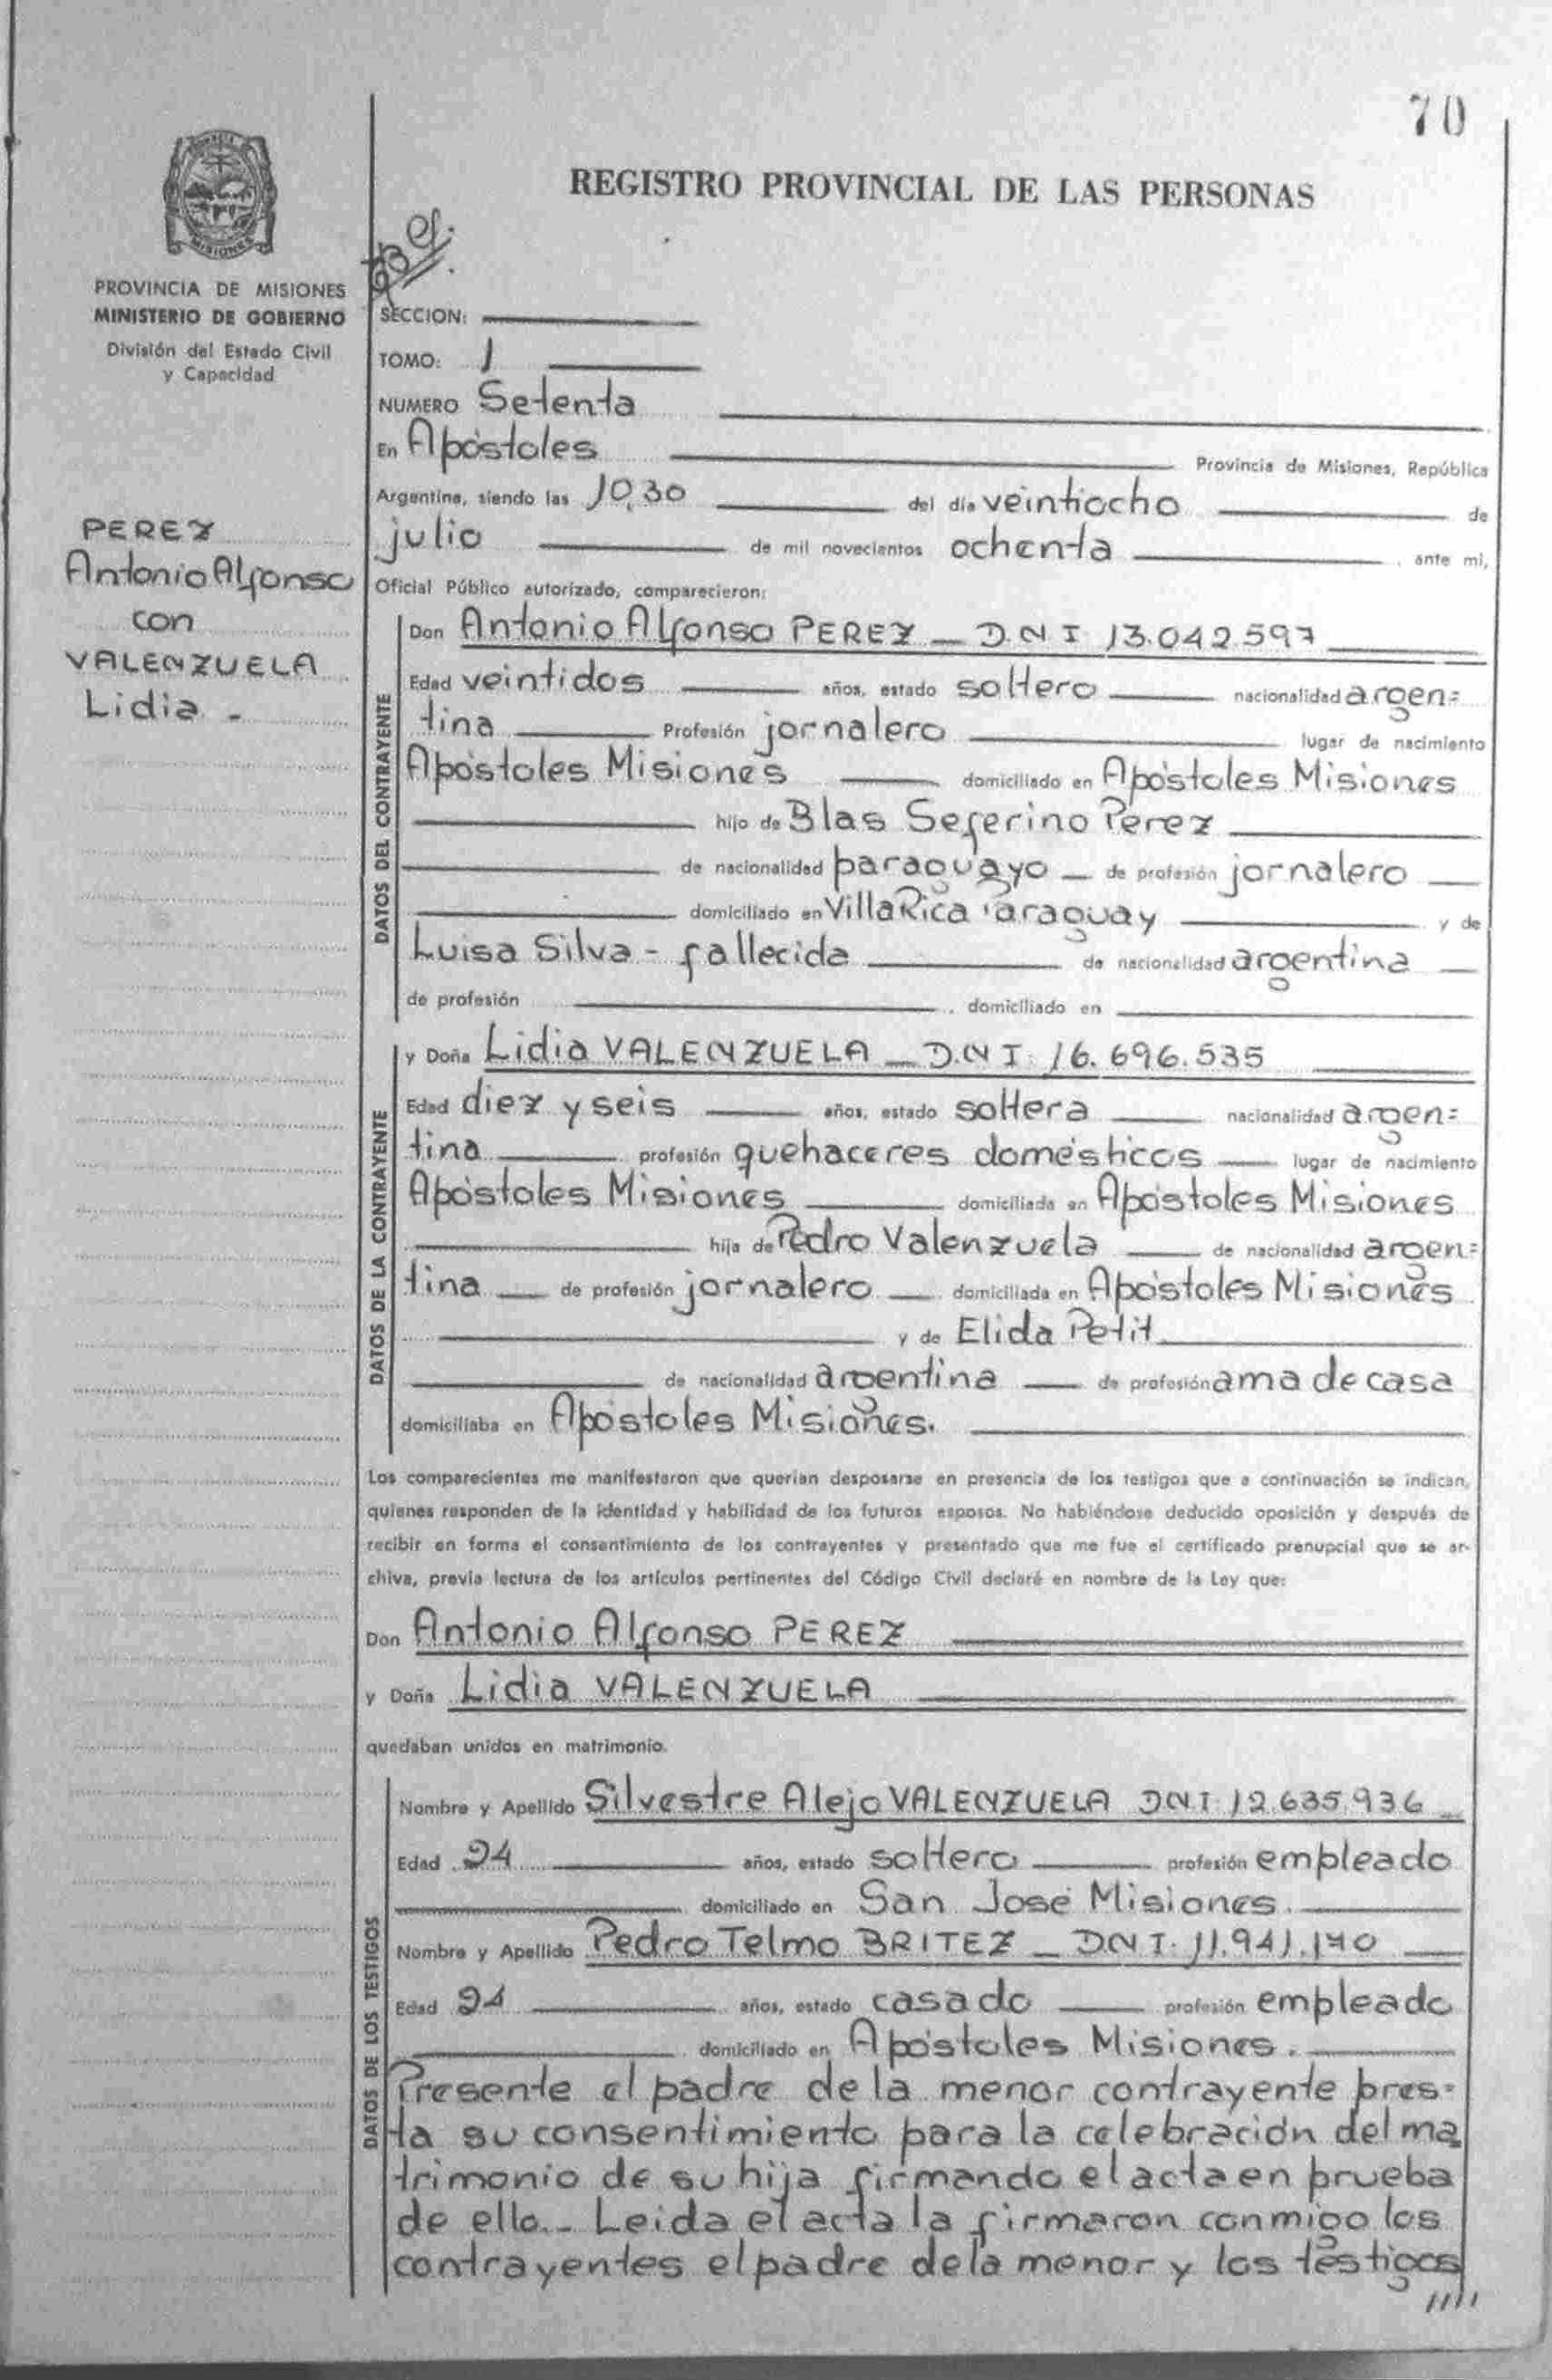 70
REGISTRO PROVINCIAL DE LAS PERSONAS
MISIONES
PROVINCIA DE MISIONES
MINISTERIO DE GOBIERNO
División del Estado Civil
y Capacidad
PEREZ
Antonio Alfonso
con
VALENZUELA
Lidia -
SECCION:
TOMO: 1
NUMERO Setenta
En Apóstoles Provincia de Misiones, República
Argentina, siendo las 10,30 del día veintiocho de
julio de mil novecientos ochenta, ante mi,
Oficial Público autorizado, comparecieron:
DATOS DEL CONTRAYENTE
Don Antonio Alfonso PEREZ - D.N.I 13.042.597
Edad veintidos años, estado soltero nacionalidad argen=
tina Profesión jornalero lugar de nacimiento
Apóstoles Misiones domiciliado en Apóstoles Misiones
hijo de Blas Seferino Perez
de nacionalidad paraguayo - de profesión jornalero
domiciliado en Villa Rica Paraguay y de
Luisa Silva - fallecida de nacionalidad argentina
de profesión , domiciliado en
DATOS DE LA CONTRAYENTE
y Doña Lidia VALENZUELA - D.N.I. 16.696.535
Edad diez y seis años, estado soltera nacionalidad argen=
tina profesión quehaceres domésticos lugar de nacimiento
Apóstoles Misiones domiciliada en Apóstoles Misiones
hija de Pedro Valenzuela de nacionalidad argen=
tina de profesión jornalero domiciliada en Apóstoles Misiones
y de Elida Petit
de nacionalidad argentina de profesión ama de casa
domiciliaba en Apóstoles Misiones.
Los comparecientes me manifestaron que querían desposarse en presencia de los testigos que a continuación se indican,
quienes responden de la identidad y habilidad de los futuros esposos. No habiéndose deducido oposición y después de
recibir en forma el consentimiento de los contrayentes y presentado que me fue el certificado prenupcial que se ar-
chiva, previa lectura de los artículos pertinentes del Código Civil declaré en nombre de la Ley que:
Don Antonio Alfonso PEREZ
y Doña Lidia VALENZUELA
quedaban unidos en matrimonio.
DATOS DE LOS TESTIGOS
Nombre y Apellido Silvestre Alejo VALENZUELA DNI 12.635.936
Edad 24 años, estado soltero profesión empleado
domiciliado en San José Misiones.
Nombre y Apellido Pedro Telmo BRITEZ - D.N.I. 11.941.140
Edad 24 años, estado casado profesión empleado
domiciliado en Apóstoles Misiones.
Presente el padre de la menor contrayente pres=
ta su consentimiento para la celebración del ma
trimonio de su hija firmando el acta en prueba
de ello.- Leida el acta la firmaron conmigo los
contrayentes el padre de la menor y los testigos
////